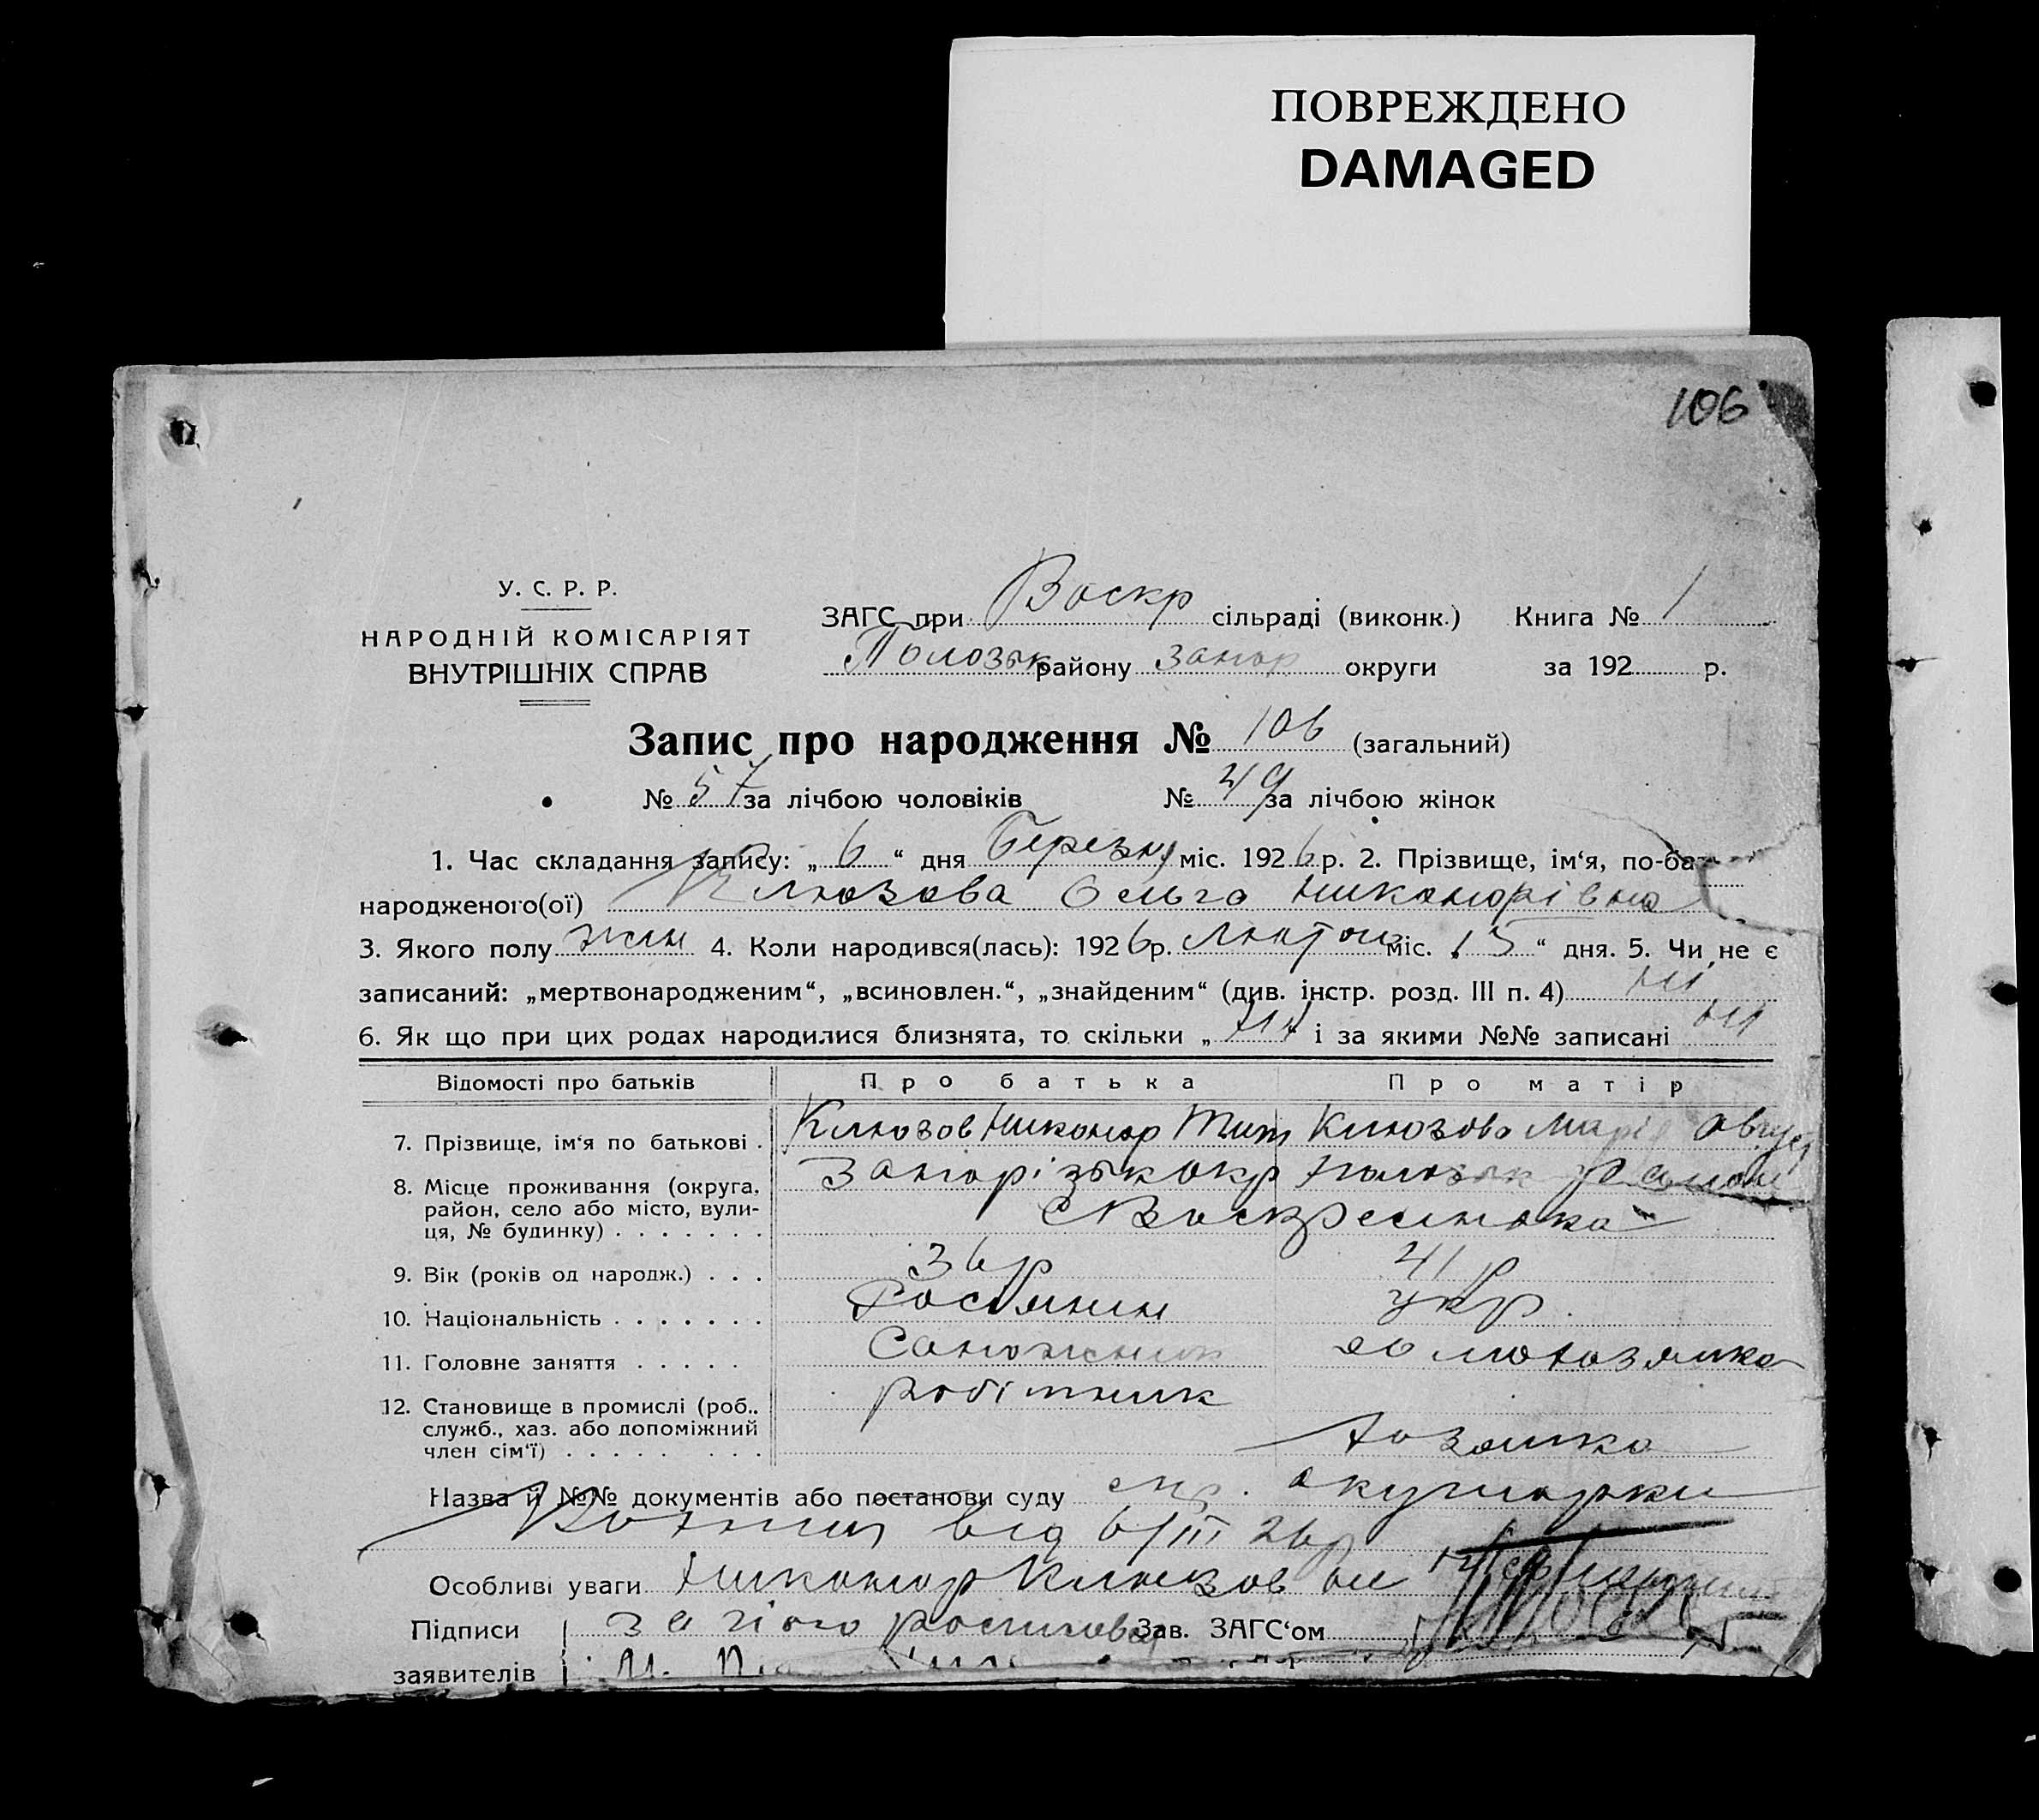 ПОВРЕЖДЕНО
DAMAGED
106
У. С. Р. Р.
НАРОДНІЙ КОМІСАРІЯТ
ВНУТРІШНІХ СПРАВ
ЗАГС при Воскр сільраді (виконк.) Книга № 1
Полозьк району Запор округи за 192 р.
Запис про народження № 106 (загальний)
№ 57 за лічбою чоловіків № 49 за лічбою жінок
1. Час складання запису: „ 6 “ дня Березня міс. 1926 р. 2. Прізвище, ім‘я, по-бат
народженого(ої) Клюзова Ольга Никанорівна
3. Якого полу жін 4. Коли народився(лась): 1926 р. Лютого міс. 15 “ дня. 5. Чи не є
записаний: „мертвонародженим“, „всиновлен.“, „знайденим“ (див. інстр. розд. III п. 4) ні
6. Як що при цих родах народилися близнята, то скільки „ ні і за якими №№ записані ні
Відомості про батьків Про батька Про матір
7. Прізвище, ім‘я по батькові . Клюзов Никанор Тит Клюзова Марія Август
8. Місце проживання (округа, Запорізьк окр Полозьк район
район, село або місто, вули- с Воскресенька
ця, № будинку) . . . . . . .
9. Вік (років од народж.) . . . 36 р 41 р
10. Національність . . . . . . . Росіянин укр.
11. Головне заняття . . . . . Сапожник домохозяйка
12. Становище в промислі (роб.. робітник
служб., хаз. або допоміжний
член сім‘ї) . . . . . . . . хозяйка
Назва й №№ документів або постанови суду акушорки
від 6/III 26р
Особливі уваги Никанор Клюзов не
Підписи за його росписався Зав. ЗАГС‘ом
заявителів